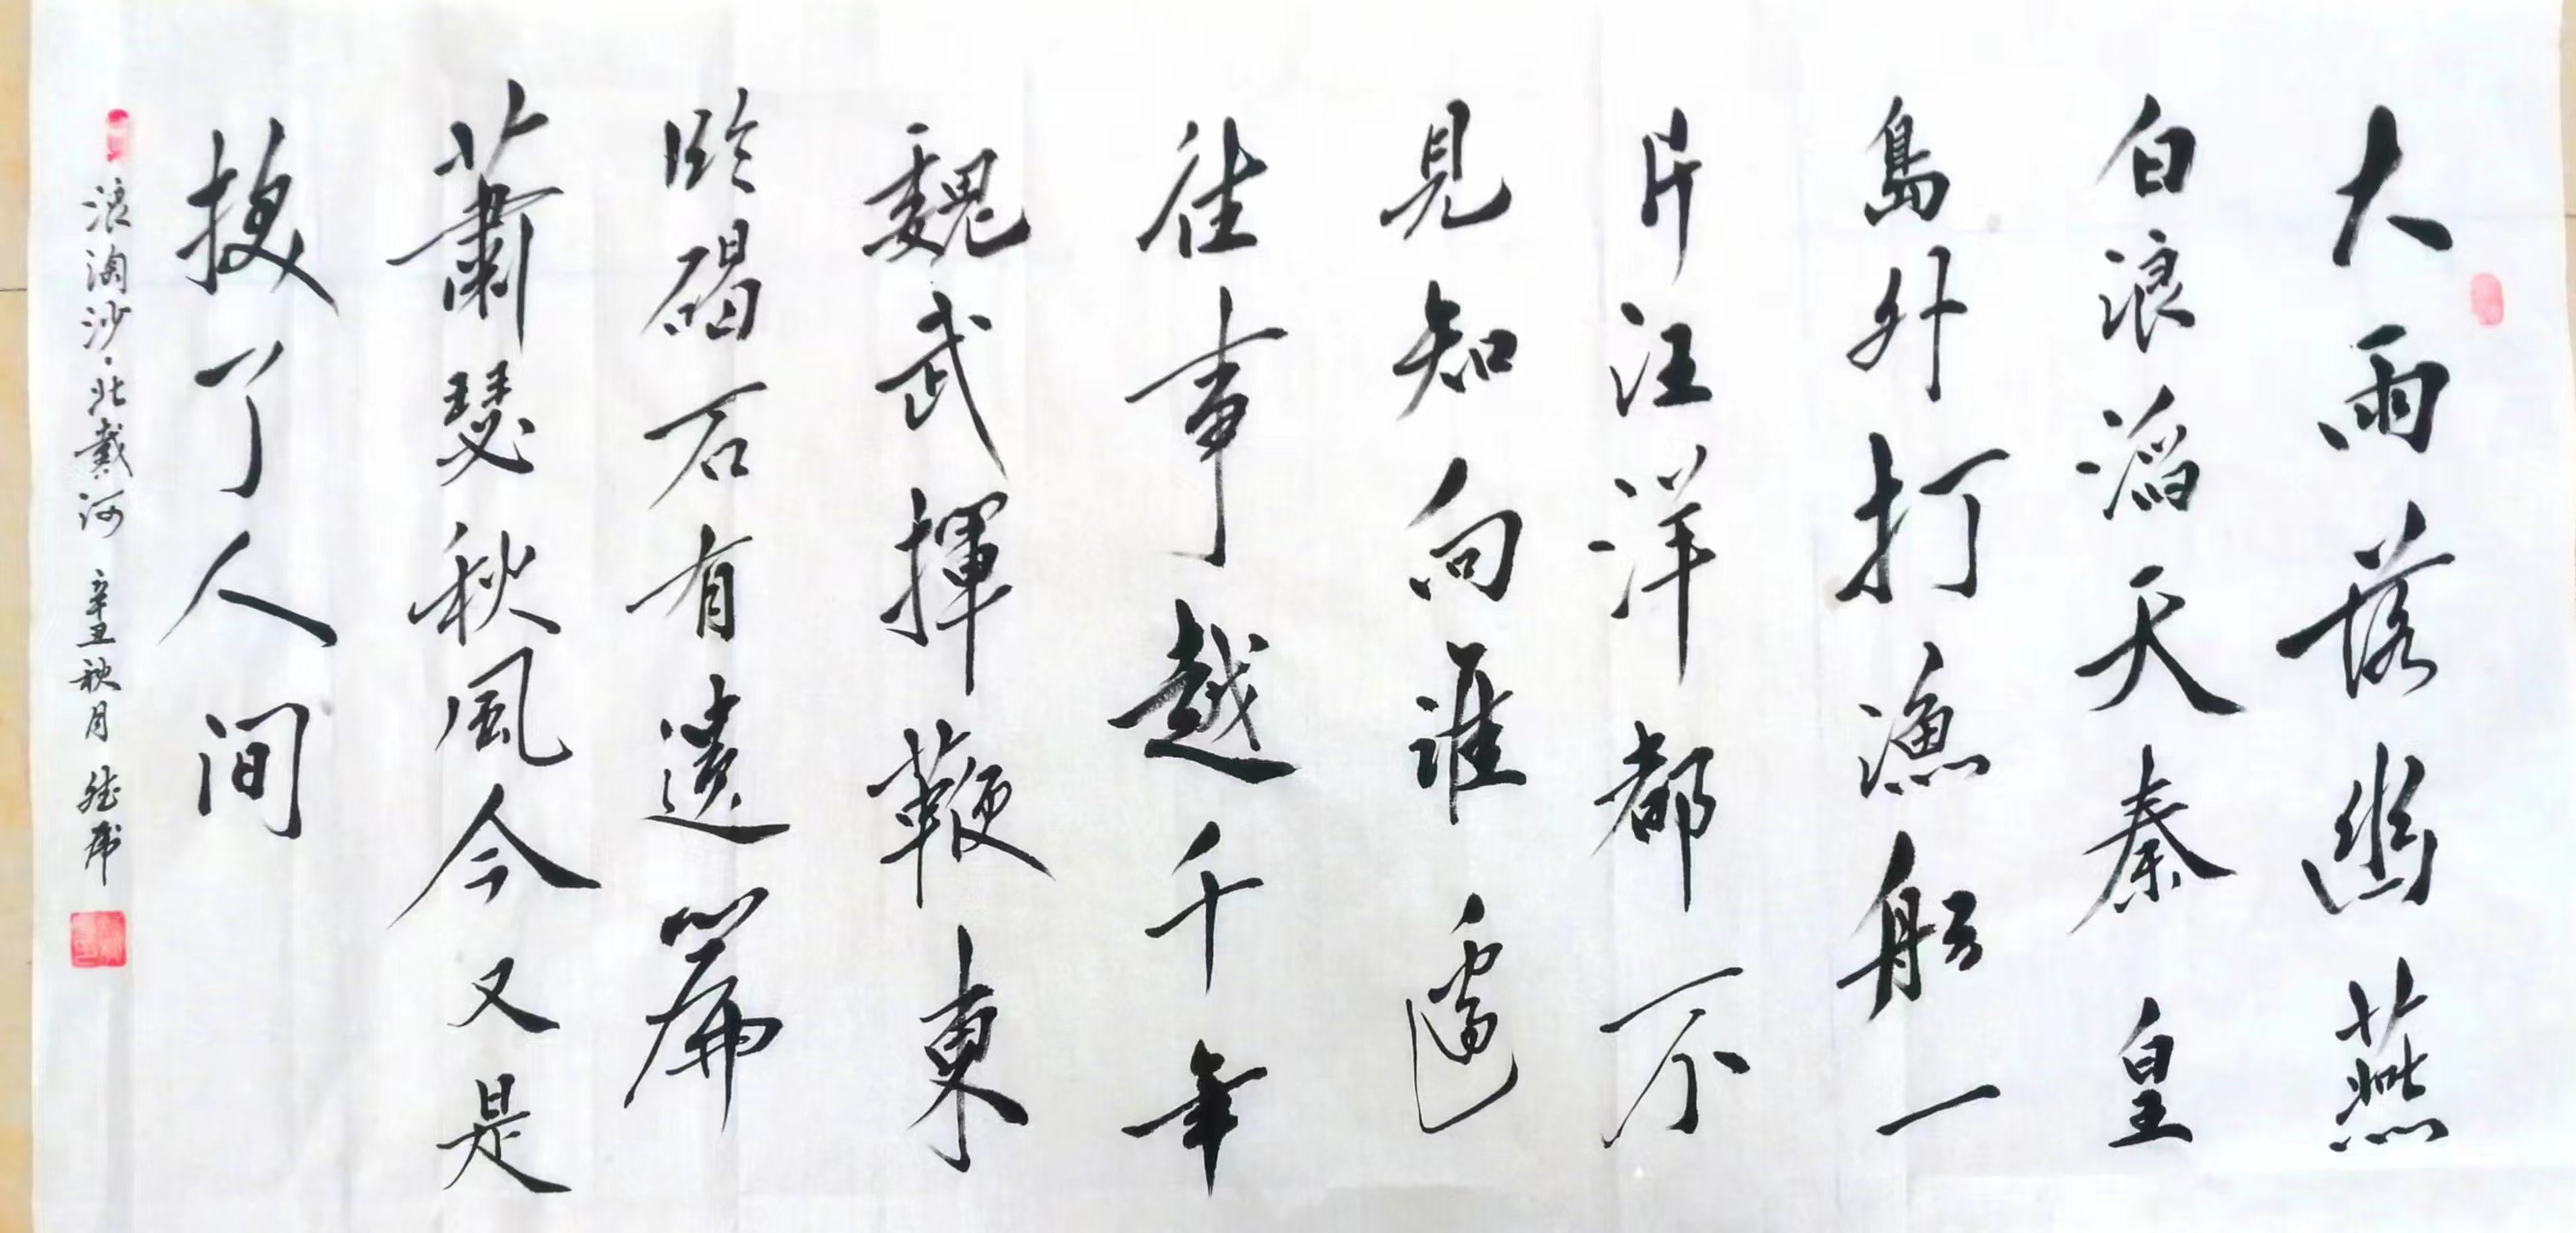 大雨落幽燕
白浪滔天秦皇
島外打漁船一
片汪洋都不
見知向誰邊
往事越千年
魏武揮鞭東
臨碣石有遺篇
蕭瑟秋風今又是
換了人间
浪淘沙·北戴河 辛丑秋月